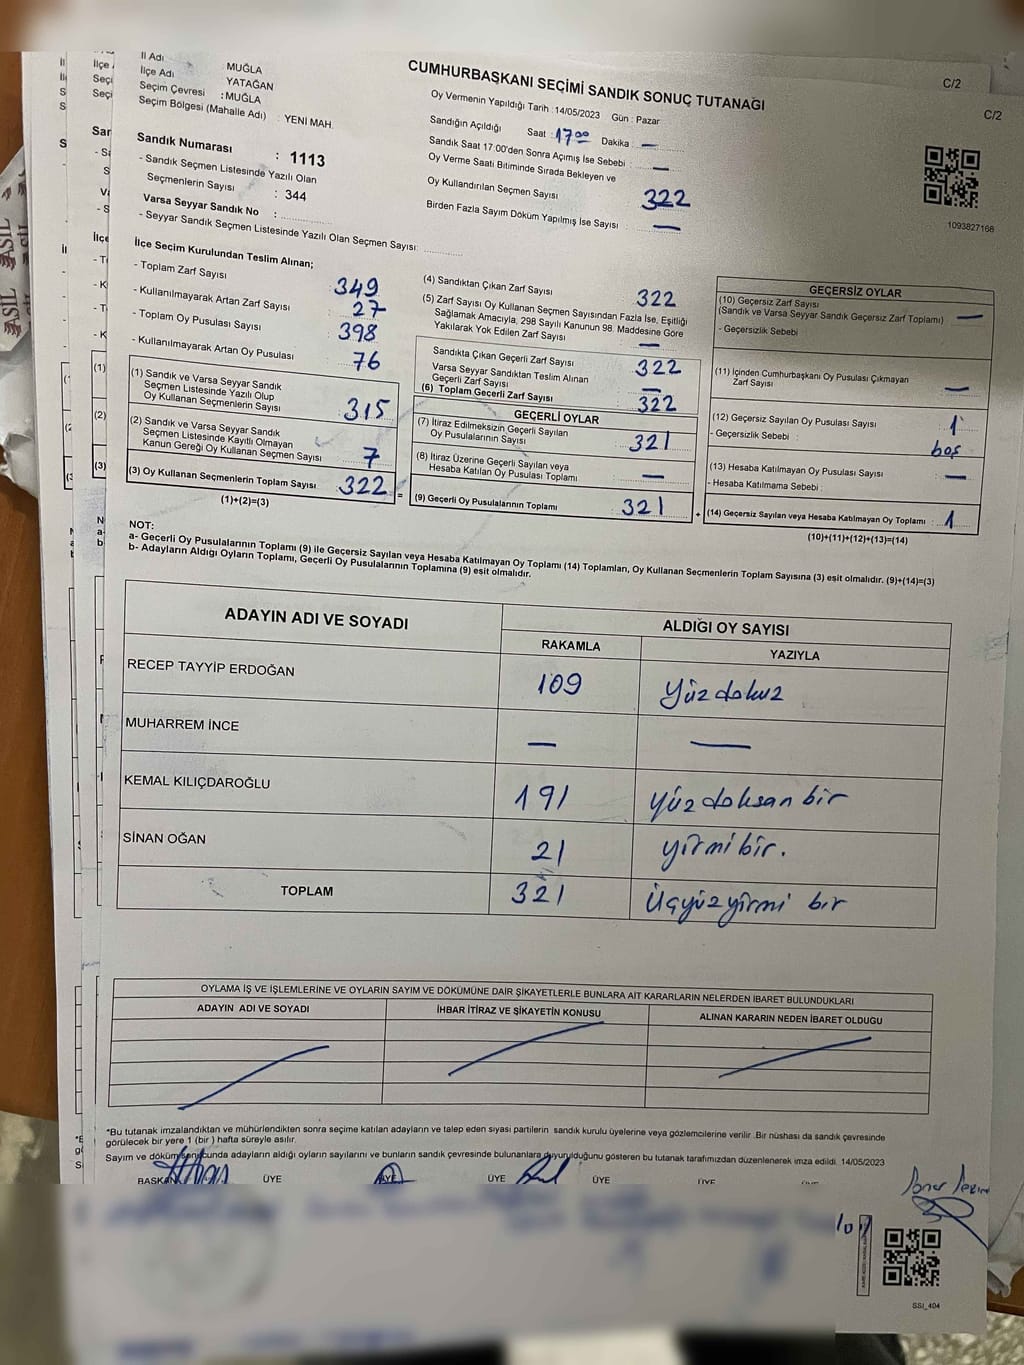 CUMHURBAŞKANI SEÇİMİ SANDIK SONUÇ TUTANAĞI
C/2
C/2
İl Adı : MUĞLA
İlçe Adı : YATAĞAN
Seçim Çevresi : MUĞLA
Seçim Bölgesi (Mahalle Adı) : YENİ MAH.
Sandık Numarası : 1113
- Sandık Seçmen Listesinde Yazılı Olan
Seçmenlerin Sayısı : 344
Varsa Seyyar Sandık No :
- Seyyar Sandık Seçmen Listesinde Yazılı Olan Seçmen Sayısı:
Oy Vermenin Yapıldığı Tarih :14/05/2023 Gün : Pazar
Sandığın Açıldığı Saat : 17 00 Dakika : —
Sandık Saat 17:00'den Sonra Açımış İse Sebebi : —
Oy Verme Saati Bitiminde Sırada Bekleyen ve
Oy Kullandırılan Seçmen Sayısı 322
Birden Fazla Sayım Döküm Yapılmış İse Sayısı : —
1093827168
İlçe Seçim Kurulundan Teslim Alınan;
- Toplam Zarf Sayısı 349
- Kullanılmayarak Artan Zarf Sayısı 27
- Toplam Oy Pusulası Sayısı 398
- Kullanılmayarak Artan Oy Pusulası 76
(1) Sandık ve Varsa Seyyar Sandık
Seçmen Listesinde Yazılı Olup
Oy Kullanan Seçmenlerin Sayısı 315
(2) Sandık ve Varsa Seyyar Sandık
Seçmen Listesinde Kayıtlı Olmayan
Kanun Gereği Oy Kullanan Seçmen Sayısı 7
(3) Oy Kullanan Seçmenlerin Toplam Sayısı 322 =
(1)+(2)=(3)
(4) Sandıktan Çıkan Zarf Sayısı 322
(5) Zarf Sayısı Oy Kullanan Seçmen Sayısından Fazla İse, Eşitliği
Sağlamak Amacıyla, 298 Sayılı Kanunun 98. Maddesine Göre
Yakılarak Yok Edilen Zarf Sayısı —
Sandıkta Çıkan Geçerli Zarf Sayısı 322
Varsa Seyyar Sandıktan Teslim Alınan
Geçerli Zarf Sayısı —
(6) Toplam Geçerli Zarf Sayısı 322
GEÇERLİ OYLAR
(7) İtiraz Edilmeksizin Geçerli Sayılan
Oy Pusulalarının Sayısı 321
(8) İtiraz Üzerine Geçerli Sayılan veya
Hesaba Katılan Oy Pusulası Toplamı —
(9) Geçerli Oy Pusulalarının Toplamı 321 +
GEÇERSİZ OYLAR
(10) Geçersiz Zarf Sayısı
(Sandık ve Varsa Seyyar Sandık Geçersiz Zarf Toplamı) —
- Geçersizlik Sebebi
(11) İçinden Cumhurbaşkanı Oy Pusulası Çıkmayan
Zarf Sayısı —
(12) Geçersiz Sayılan Oy Pusulası Sayısı 1
- Geçersizlik Sebebi : boş
(13) Hesaba Katılmayan Oy Pusulası Sayısı —
- Hesaba Katılmama Sebebi :
(14) Geçersiz Sayılan veya Hesaba Katılmayan Oy Toplamı : 1
(10)+(11)+(12)+(13)=(14)
NOT:
a- Geçerli Oy Pusulalarının Toplamı (9) ile Geçersiz Sayılan veya Hesaba Katılmayan Oy Toplamı (14) Toplamları, Oy Kullanan Seçmenlerin Toplam Sayısına (3) eşit olmalıdır. (9)+(14)=(3)
b- Adayların Aldığı Oyların Toplamı, Geçerli Oy Pusulalarının Toplamına (9) eşit olmalıdır.
ADAYIN ADI VE SOYADI
ALDIĞI OY SAYISI
RAKAMLA YAZIYLA
RECEP TAYYİP ERDOĞAN 109 Yüz dokuz
MUHARREM İNCE — —
KEMAL KILIÇDAROĞLU 191 yüz doksan bir
SİNAN OĞAN 21 yirmi bir.
TOPLAM 321 Üçyüzyirmi bir
OYLAMA İŞ VE İŞLEMLERİNE VE OYLARIN SAYIM VE DÖKÜMÜNE DAİR ŞİKAYETLERLE BUNLARA AİT KARARLARIN NELERDEN İBARET BULUNDUKLARI
ADAYIN ADI VE SOYADI İHBAR İTİRAZ VE ŞİKAYETİN KONUSU ALINAN KARARIN NEDEN İBARET OLDUĞU
*Bu tutanak imzalandıktan ve mühürlendikten sonra seçime katılan adayların ve talep eden siyasi partilerin sandık kurulu üyelerine veya gözlemcilerine verilir .Bir nüshası da sandık çevresinde
görülecek bir yere 1 (bir ) hafta süreyle asılır.
Sayım ve döküm sonucunda adayların aldığı oyların sayısını ve bunların sandık çevresinde bulunanlara duyurulduğunu gösteren bu tutanak tarafımızdan düzenlenerek imza edildi. 14/05/2023
BAŞKAN ÜYE ÜYE ÜYE ÜYE ÜYE
SSI_404